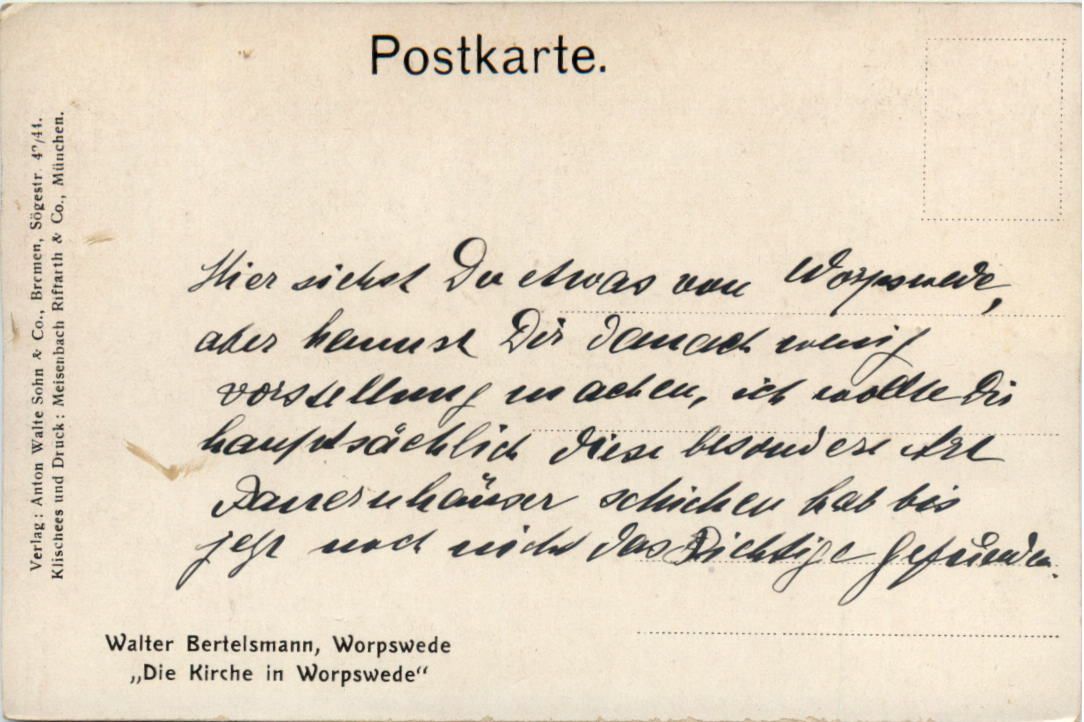 Postkarte.
Verlag: Anton Walte Sohn & Co., Bremen, Sögestr
Klischees und Druck: Meisenbach Riffarth & Co., München.
Hier siehst Du etwas von Worpswede,
aber kannst Dir danach wenig
vorstellung machen, ich wollte Dir
hauptsächlich diese besondere Art
Bauernhäuser schicken hab bis
jetzt noch nicht das Richtige gefunden.
Walter Bertelsmann, Worpswede
„Die Kirche in Worpswede“